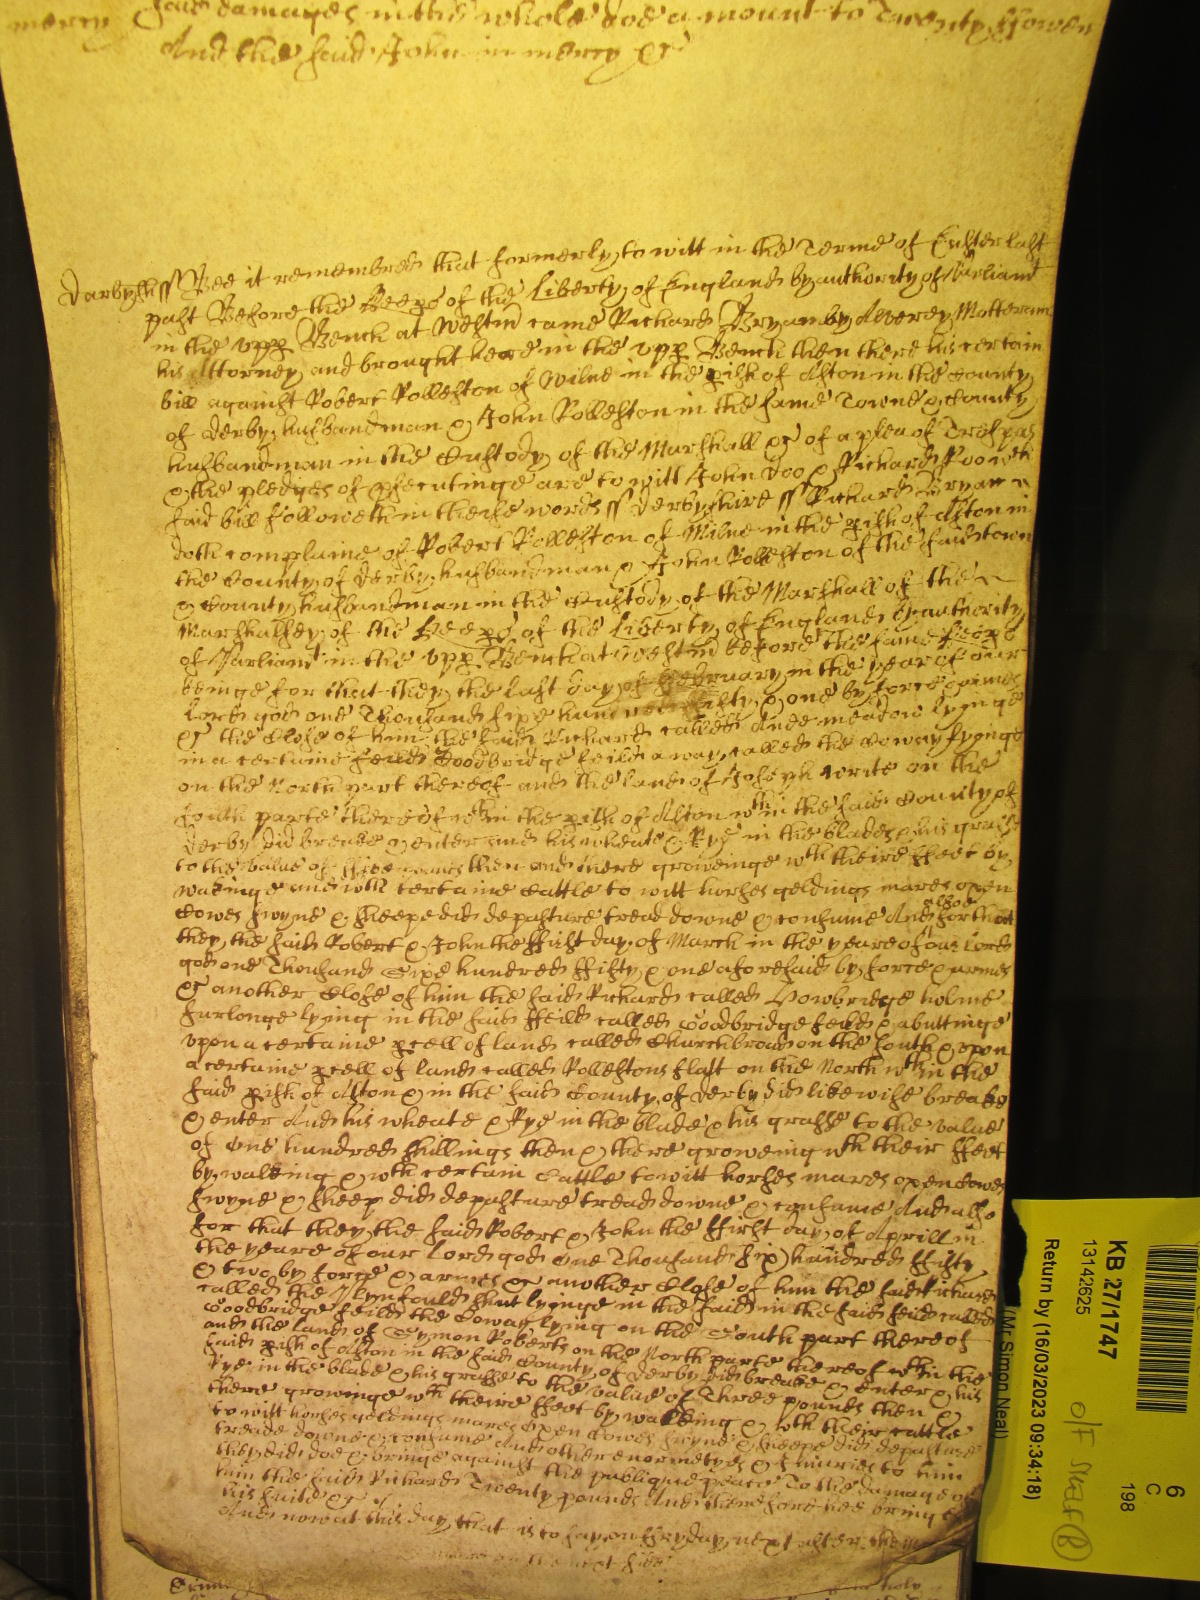 mercy said damages in the whole doe amount to Twenty
And the said John in mercy &c
Darbysh ss Bee it remembred that formerly to witt in the Terme of Easter last
past Before the Keeps of the Liberty of England by authority of Parliamt
in the upp Bench at Westm came Richard Bryan by Averey Motteram
his Attorney and brought here in the upp Bench then there his certain
bill against Robert Rolleston of Wilne in the pish of Aston in the County
of Derby husbandman & John Rolleston in the same Towne & County
husbandman in the Custody of the Marshall &c of a plea of Trespas
& the pledges of psecutinge are to witt John Doo & Richard Roo wch
said bill followeth in theise words ss Derbyshire ss Richard Bryan
doth complaine of Robert Rolleston of Milne in the pish of Aston in
the County of Derby husbandman & John Rolleston of the said town
& County husbandman in the Custody of the Marshall of the
Marshalsey of the Keeps of the Liberty of England by authority
of Parliamt in the upp Bench at Westm before the same Keeps
beinge for that they the last day of February in the year of our
Lord god one Thousand sixe hundred fifty & one by force & armes
&c the Close of him the said Richard called meadow lyinge
in a certaine feild Woodbridge feild away called the Coway lyinge
on the North part thereof and the land of Joseph write on the
south parte thereof wthin the pish of Aston wthin the said County of
Derby did breake & enter and his wheate & Rye in the blades & his grasse
to the value of then and there groweinge wth theire ffeet by
walkinge and wth certaine Cattle to witt horses geldings mares oxen
Cowes swyne & sheepe did depasture tread downe & consume And alsoe for that
they the said Robert & John the ffirst day of March in the yeare of our Lord
god one Thousand Sixe hundred ffifty & one aforesaid by force & armes
&c another Close of him the said Richard called Cowbridge holme
furlonge lying in the said ffeild called Woodbridge feild & abuttinge
upon a certaine pcell of land called Churchbroad on the south & upon
a certaine pcell of land called Rollestons flatt on the North wthin the
said pish of Aston & in the said County of Derby did likewise breake
& enter And his wheate & Rye in the blade & his grasse to the value
of one hundred shillings then & there groweing wth their ffeet
by walking & wth certain Cattle to witt horses mares oxen Cowes
swyne & sheep did depasture tread downe & consume And alsoe
for that they the said Robert & John the ffirst day of Aprill in
the yeare of our Lord god One Thousand six hundred ffifty
& two by force & armes &c another Close of him the said Richard
called the lyinge in the said in the said feild called
Woodbridge feild the Coway lying on the South part thereof
and the land of Symon Roberts on the North parte thereof wthin the
said pish of Aston in the said County of Derby did breake & enter & his
Rye in the blade & his grasse to the value of Three pounds then &
there growinge wth theire ffeet by walking & wth their cattle
to witt horses geldings mares oxen Cowes swyne & sheepe did depasture
treade downe & consume And other enormetyes & injuries to him
they did doe & bringe against the publique peace To the damage of
him the said Richard Twenty pounds And therefore hee brings
his suite &c
And now at this day that is to say on ffryday next after the
on the next side
KB 27/1747
13142625
Return by (16/03/2023 09:34:18)
(Mr Simon Neal)
6
C
198
O/F Shelf (B)